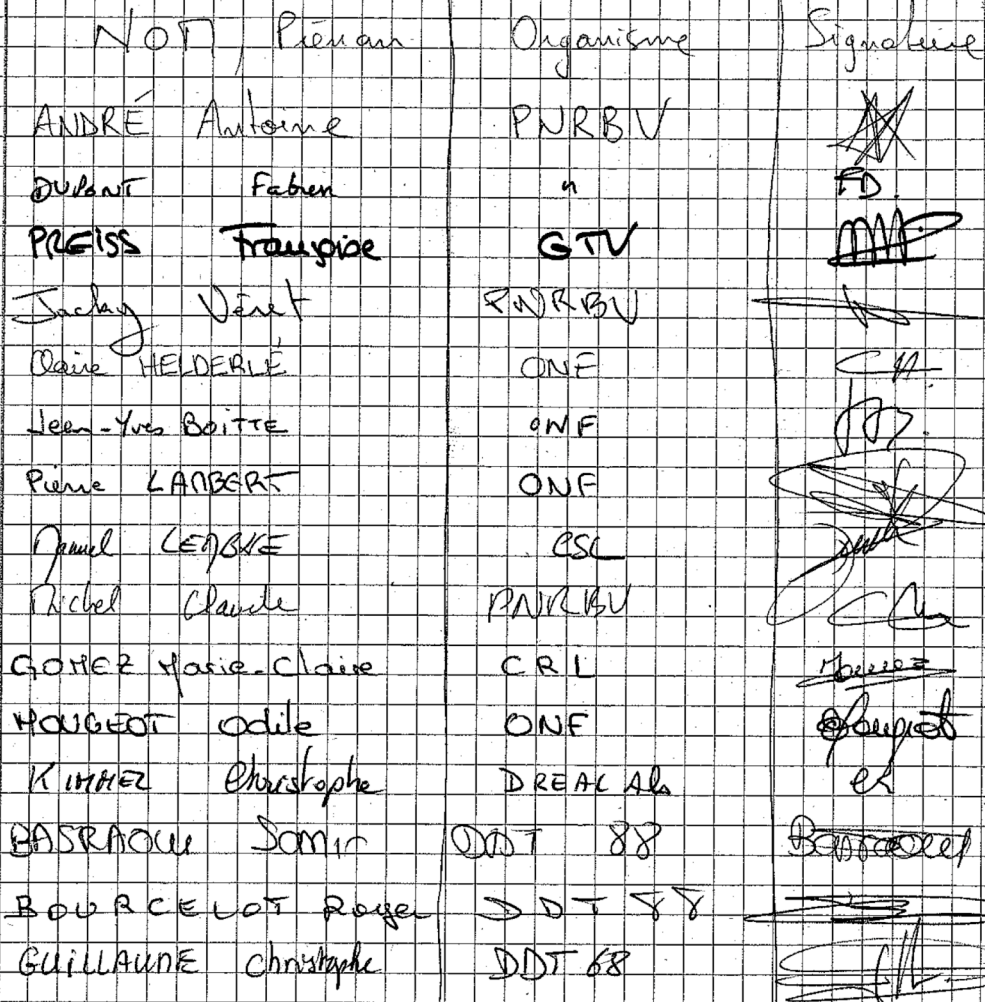 NOM, Prénom Organisme Signature
ANDRÉ Antoine PNRBV
DUPONT Fabien " FD.
PREISS Françoise GTV
Jacky Véret PNRBV
Claire HELDERLÉ ONF CH.
Jean-Yves BOITTE ONF
Pierre LAMBERT ONF
Manuel LEMBKE CSL
Michel Claude PNRBV
GOMEZ Marie-Claire CRL Gomez
MOUGEOT Odile ONF Mougeot
KIMMEL Christophe DREAL Als CK
BASRAOUI Samir DDT 88 Basraoui
BOURCELOT Roger DDT 88
GUILLAUME Christophe DDT 68